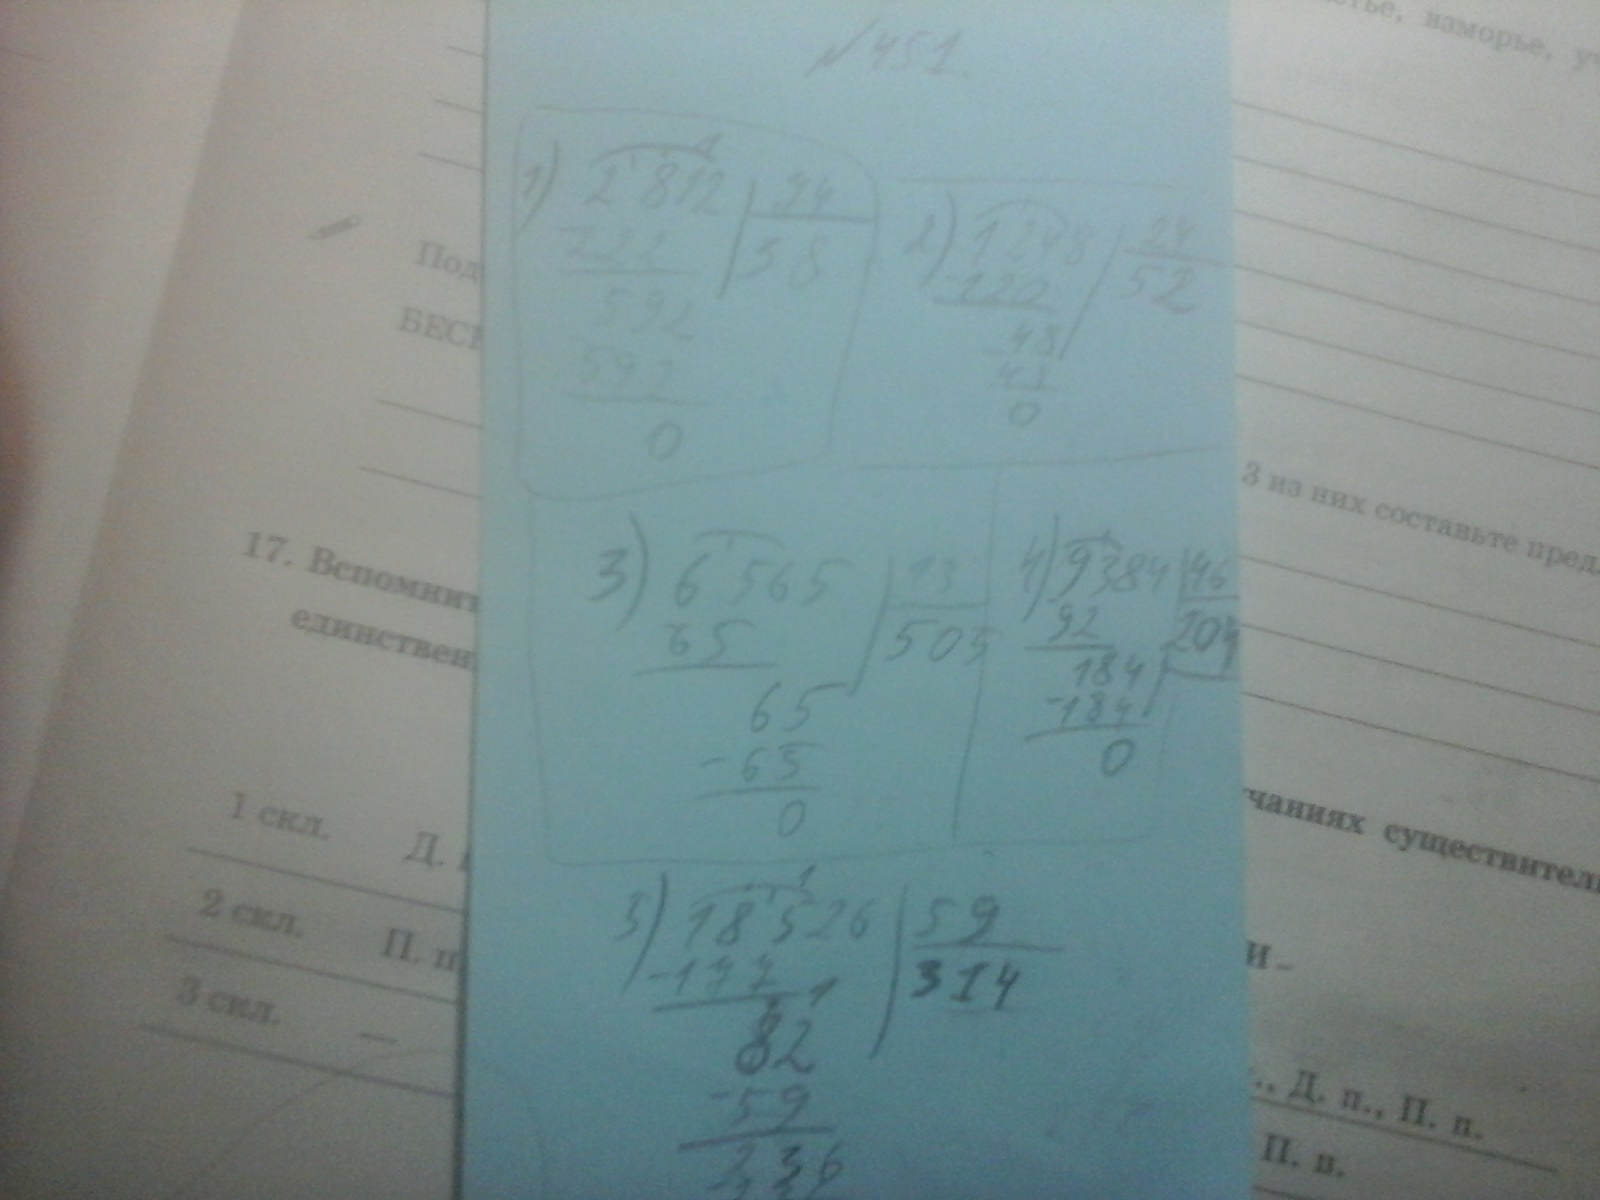 №451.
1) 2812 | 74
222 | 38
592
592
0
2) 1248 | 24
-120 | 52
48
48
0
3) 6565 | 13
65 | 505
65
-65
0
4) 9384 | 46
-92 | 204
184
-184
0
5) 18526 | 59
-177 | 314
82
-59
236
17. Вспомнит
единствен
1 скл. Д.
2 скл. П. п
3 скл. —
Под
БЕС
взморье,
3 из них составьте пред
чаниях существитель
И –
Д. п., П. п.
П. п.